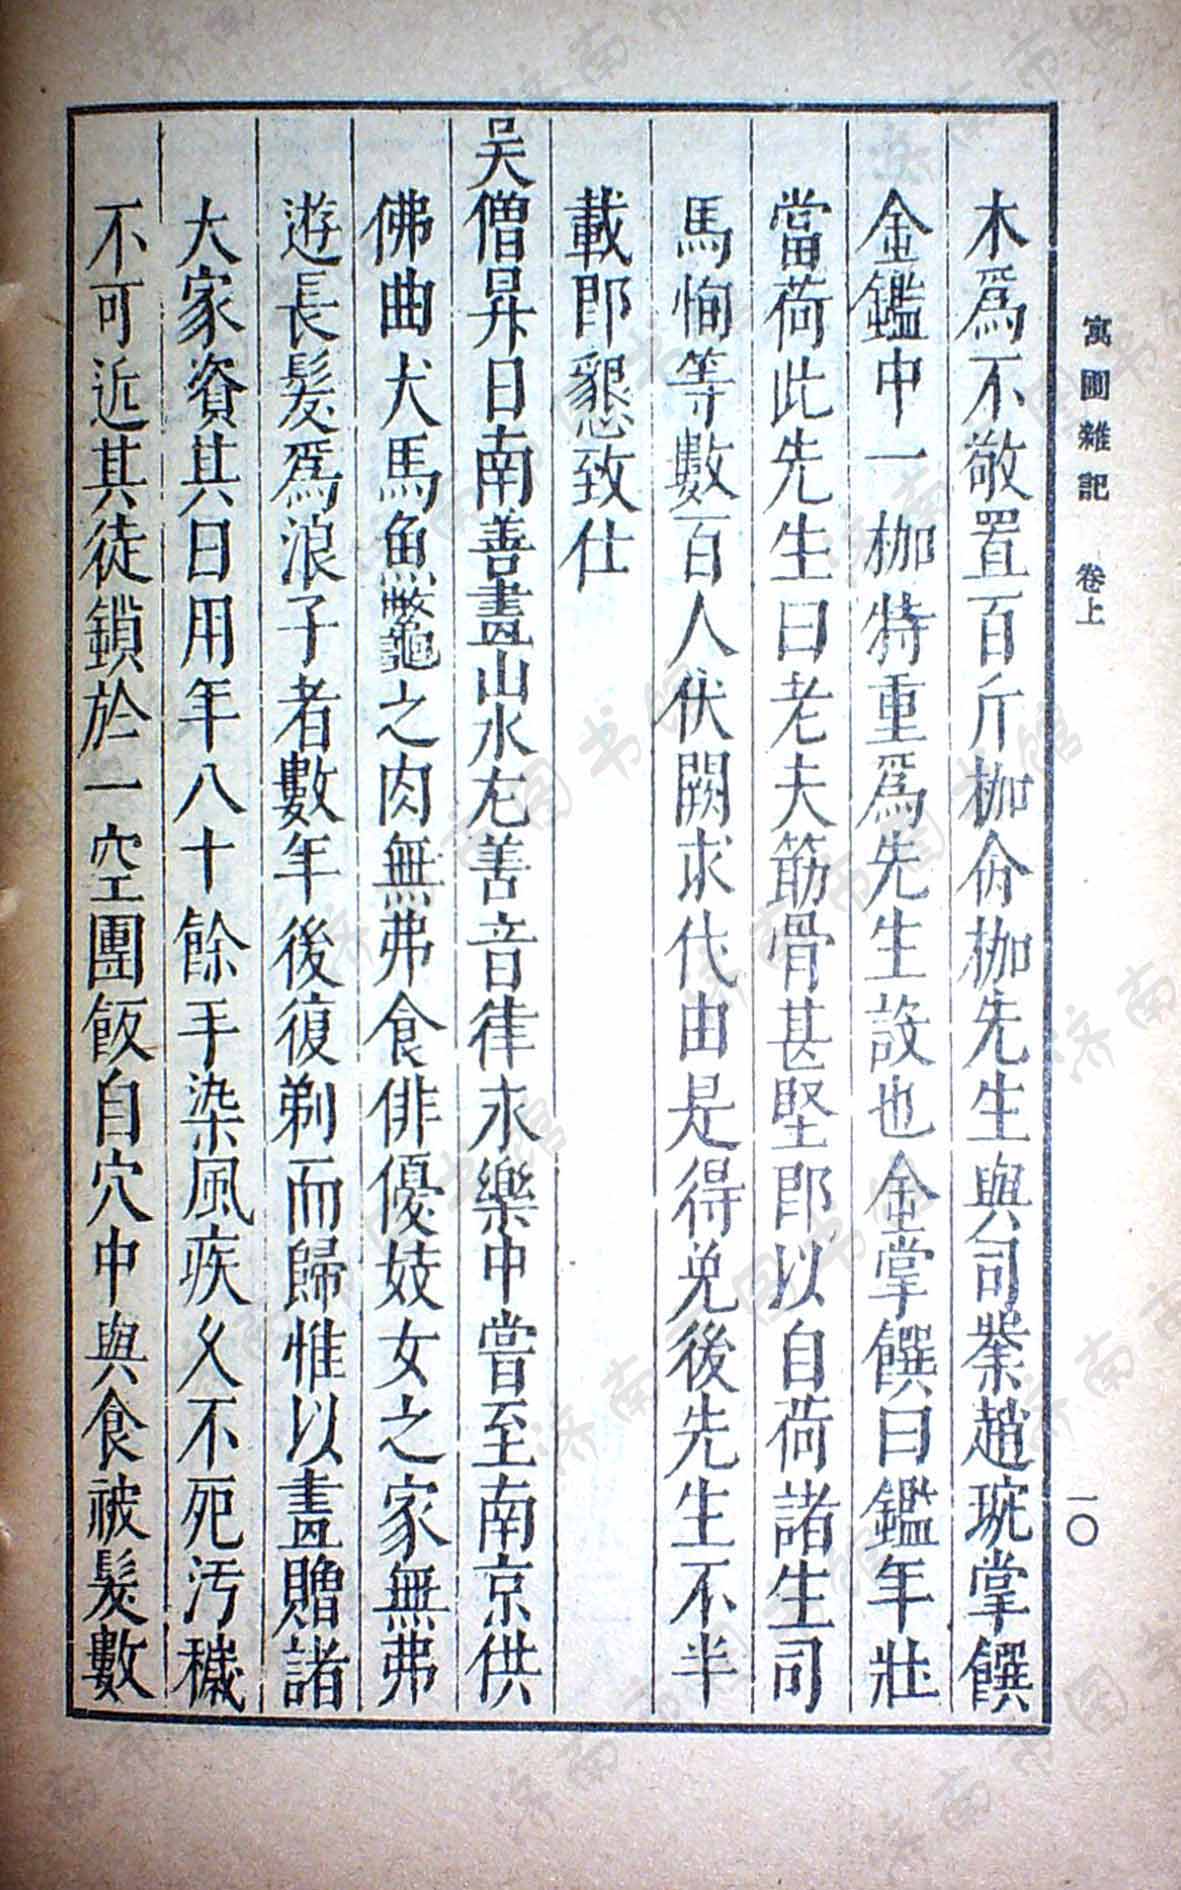 寓圃雜記　卷上
一〇
木爲不敬置百斤枷俞枷先生與司業趙琬掌饌
金鑑中一枷特重爲先生設也金掌饌曰鑑年壯
當荷此先生曰老夫筋骨甚堅即以自荷諸生司
馬恂等數百人伏闕求代由是得免後先生不半
載即懇致仕
吴僧昇日南善畫山水尤善音律永樂中嘗至南京供
佛曲犬馬魚鱉龜之肉無弗食俳優妓女之家無弗
遊長髮爲浪子者數年後復剃而歸惟以畫贈諸
大家資其日用年八十餘手染風疾久不死污穢
不可近其徒鎖於一空團飯自穴中與食被髮數